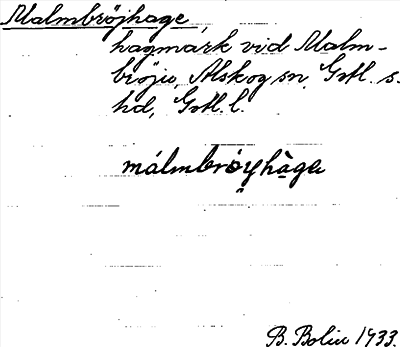 Malmbröjhage,
hagmark vid Malm-
bröje, Alskog sn, Gotl. s.
hd, Gotl. l.
málmbrö̤yhàga
B. Bolin 1933.